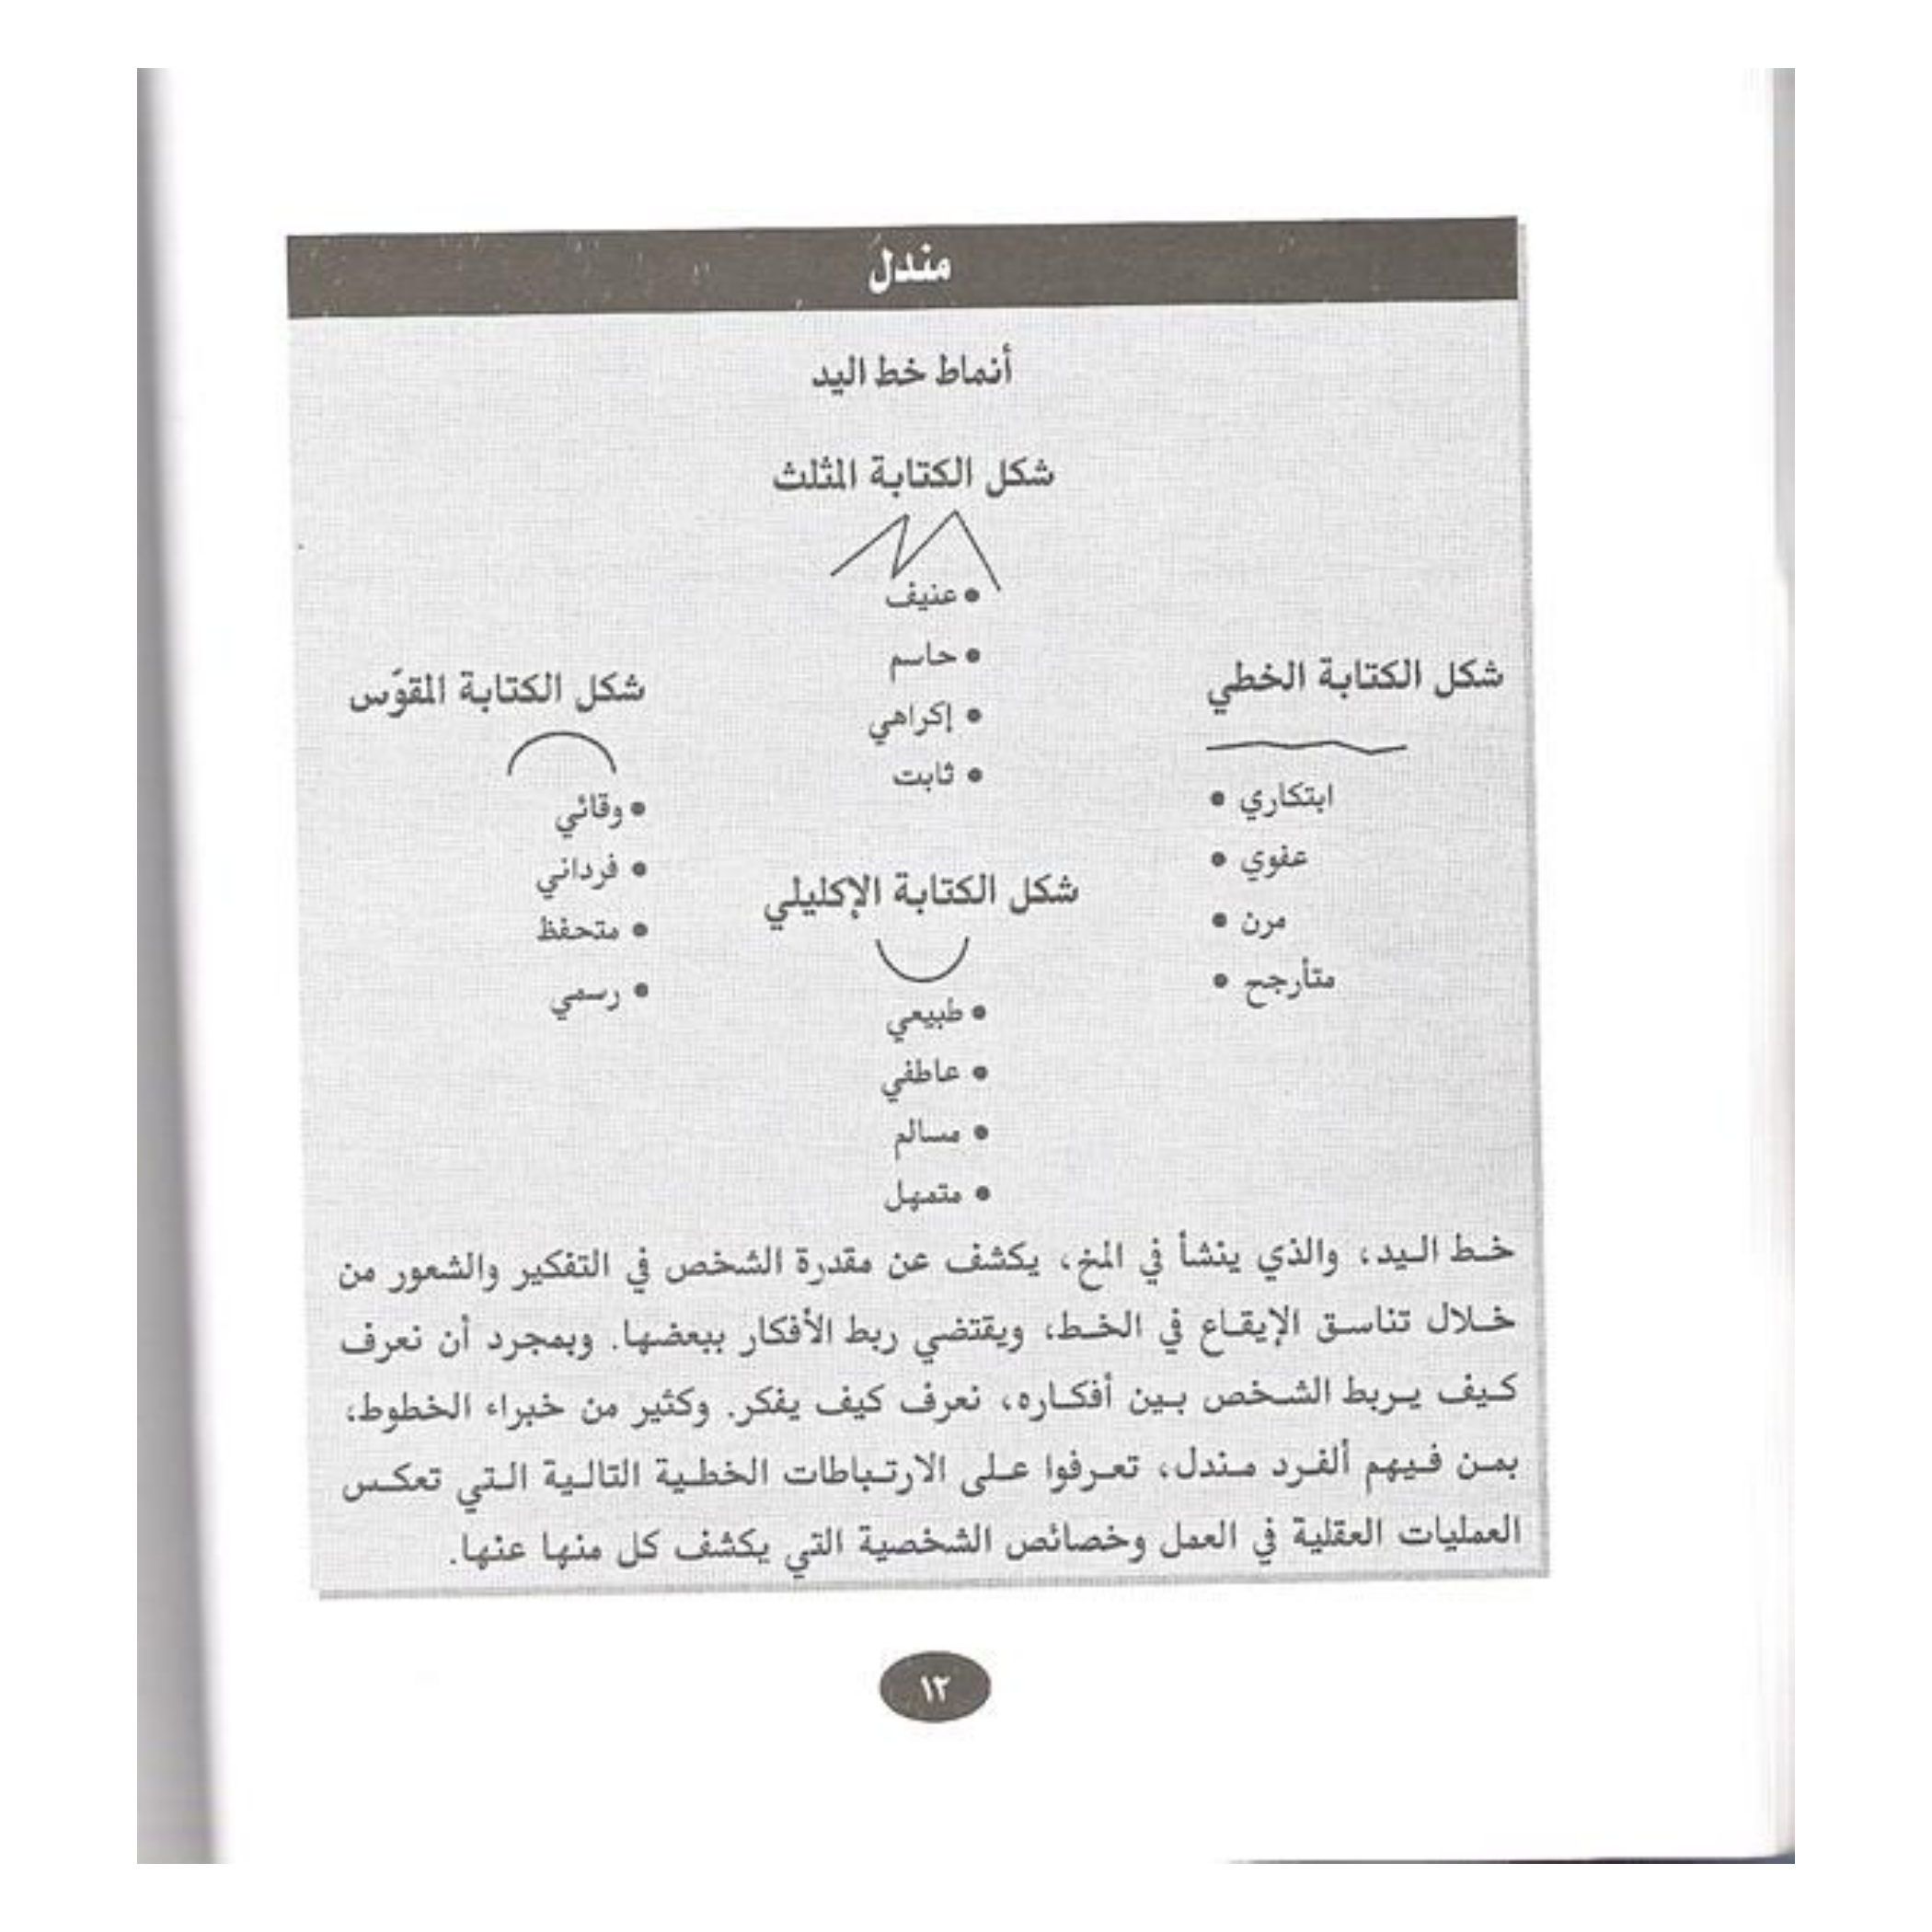 مندل
أنماط خط اليد
شكل الكتابة المثلث
• عنيف
• حاسم
• إكراهي
• ثابت
شكل الكتابة الخطي
ابتكاري •
عفوي •
مرن •
متأرجح •
شكل الكتابة المقوّس
• وقائي
• فرداني
• متحفظ
• رسمي
شكل الكتابة الإكليلي
• طبيعي
• عاطفي
• مسالم
• متمهل
خط اليد، والذي ينشأ في المخ، يكشف عن مقدرة الشخص في التفكير والشعور من
خلال تناسق الإيقاع في الخط، ويقتضي ربط الأفكار ببعضها. وبمجرد أن نعرف
كيف يربط الشخص بين أفكاره، نعرف كيف يفكر. وكثير من خبراء الخطوط،
بمن فيهم ألفرد مندل، تعرفوا على الارتباطات الخطية التالية التي تعكس
العمليات العقلية في العمل وخصائص الشخصية التي يكشف كل منها عنها.
١٢